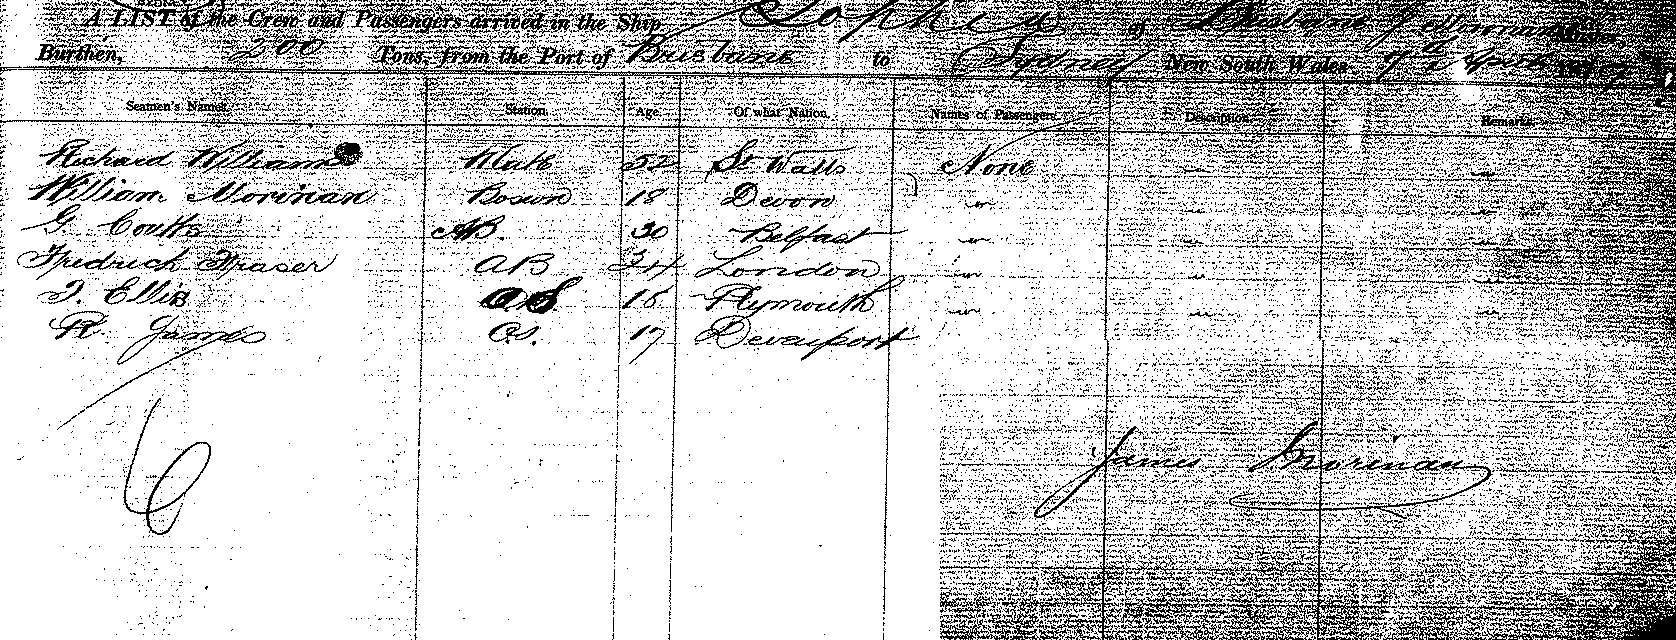 A LIST of the Crew and Passengers arrived in the Ship Sophia of Brisbane J Morinan Master,
Burthen, 200 Tons, from the Port of Brisbane to Sydney New South Wales
Seamen's Names. Station. Age. Of what Nation. Names of Passengers. Description. Remarks.
Richard Williams Mate 52 St Walls None " "
William Morinan Bosun 18 Devon " " "
G. Coutts AB. 30 Belfast " " "
Fredrich Fraser AB 24 London " " "
T. Ellis O.S. 16 Plymouth " " "
R. James O.S. 17 Devenport
6
James Morinan